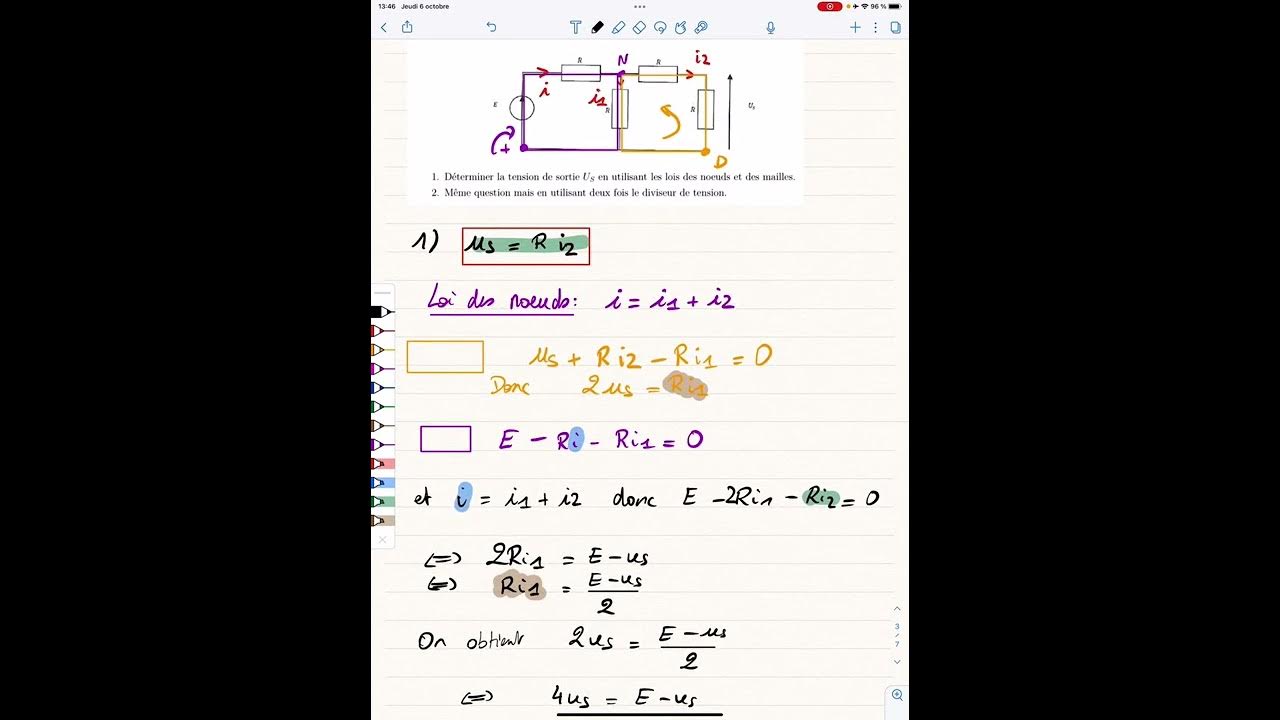 13:46 Jeudi 6 octobre 96 %
R N R i2
i i1
E R R Us
+ D
1. Déterminer la tension de sortie US en utilisant les lois des noeuds et des mailles.
2. Même question mais en utilisant deux fois le diviseur de tension.
1) us = R i2
Loi des noeuds: i = i1 + i2
us + Ri2 - Ri1 = 0
Donc 2us = Ri1
E - Ri - Ri1 = 0
et i = i1 + i2 donc E - 2Ri1 - Ri2 = 0
(=) 2Ri1 = E - us
(=) Ri1 = E - us / 2
On obtient 2us = E - us / 2
(=) 4us = E - us
3 / 7